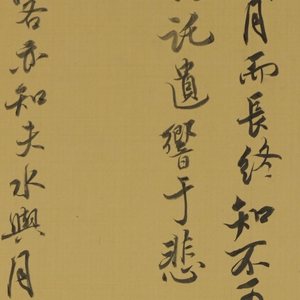 月而長終知不
託遺響于悲
客亦知夫水與月